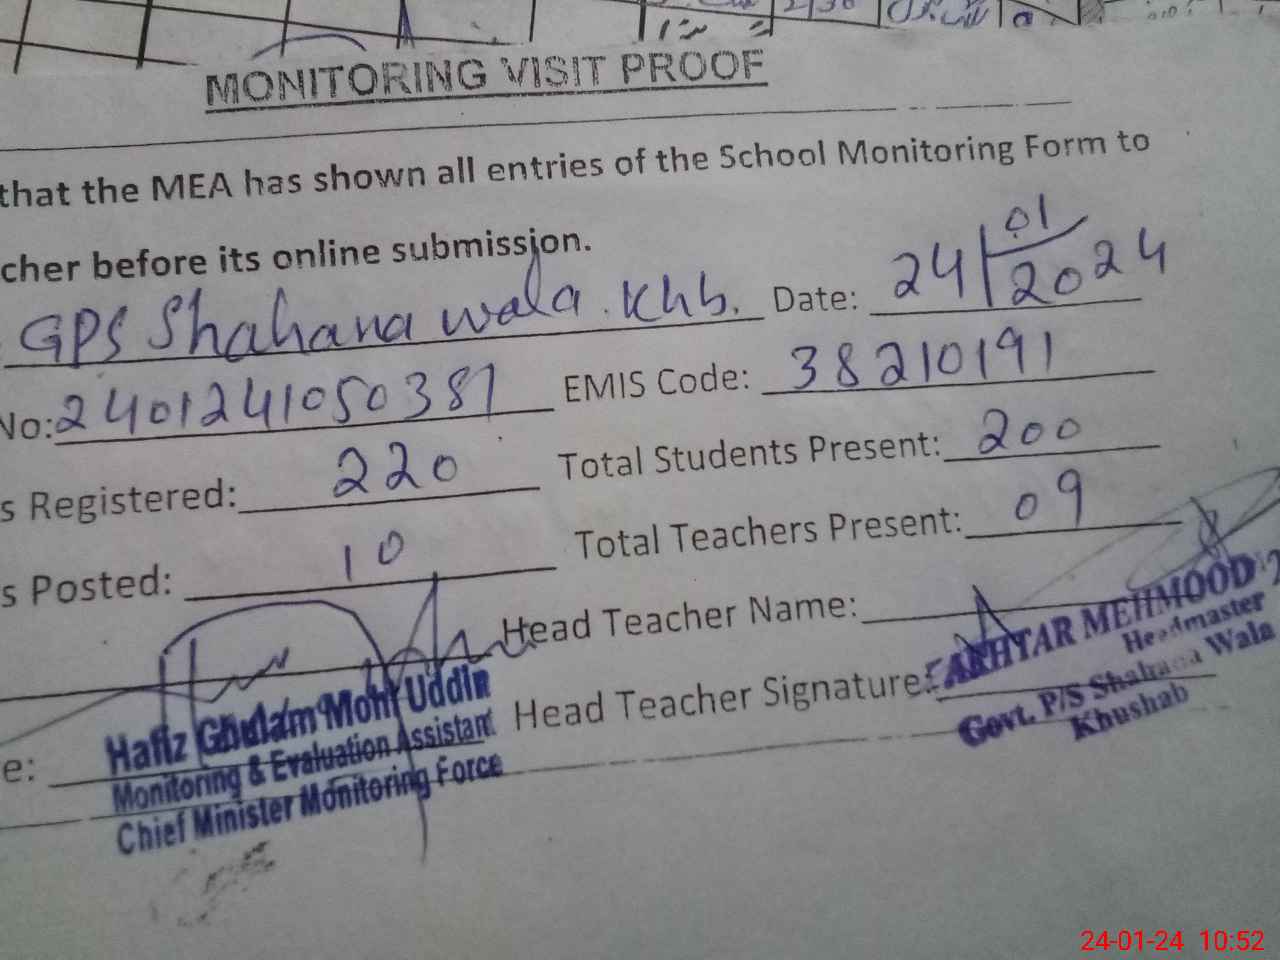 MONITORING VISIT PROOF
that the MEA has shown all entries of the School Monitoring Form to
cher before its online submission.
GPS Shahana wala. Khb. Date: 24/01/2024
No: 2401241050387 EMIS Code: 38210191
s Registered: 220 Total Students Present: 200
s Posted: 10 Total Teachers Present: 09
Head Teacher Name:
AKHTAR MEHMOOD
Headmaster
Head Teacher Signature:
Govt. P/S Shahana Wala
Khushab
e:
Hafiz Ghulam Mohi Uddin
Monitoring & Evaluation Assistant
Chief Minister Monitoring Force
24-01-24 10:52